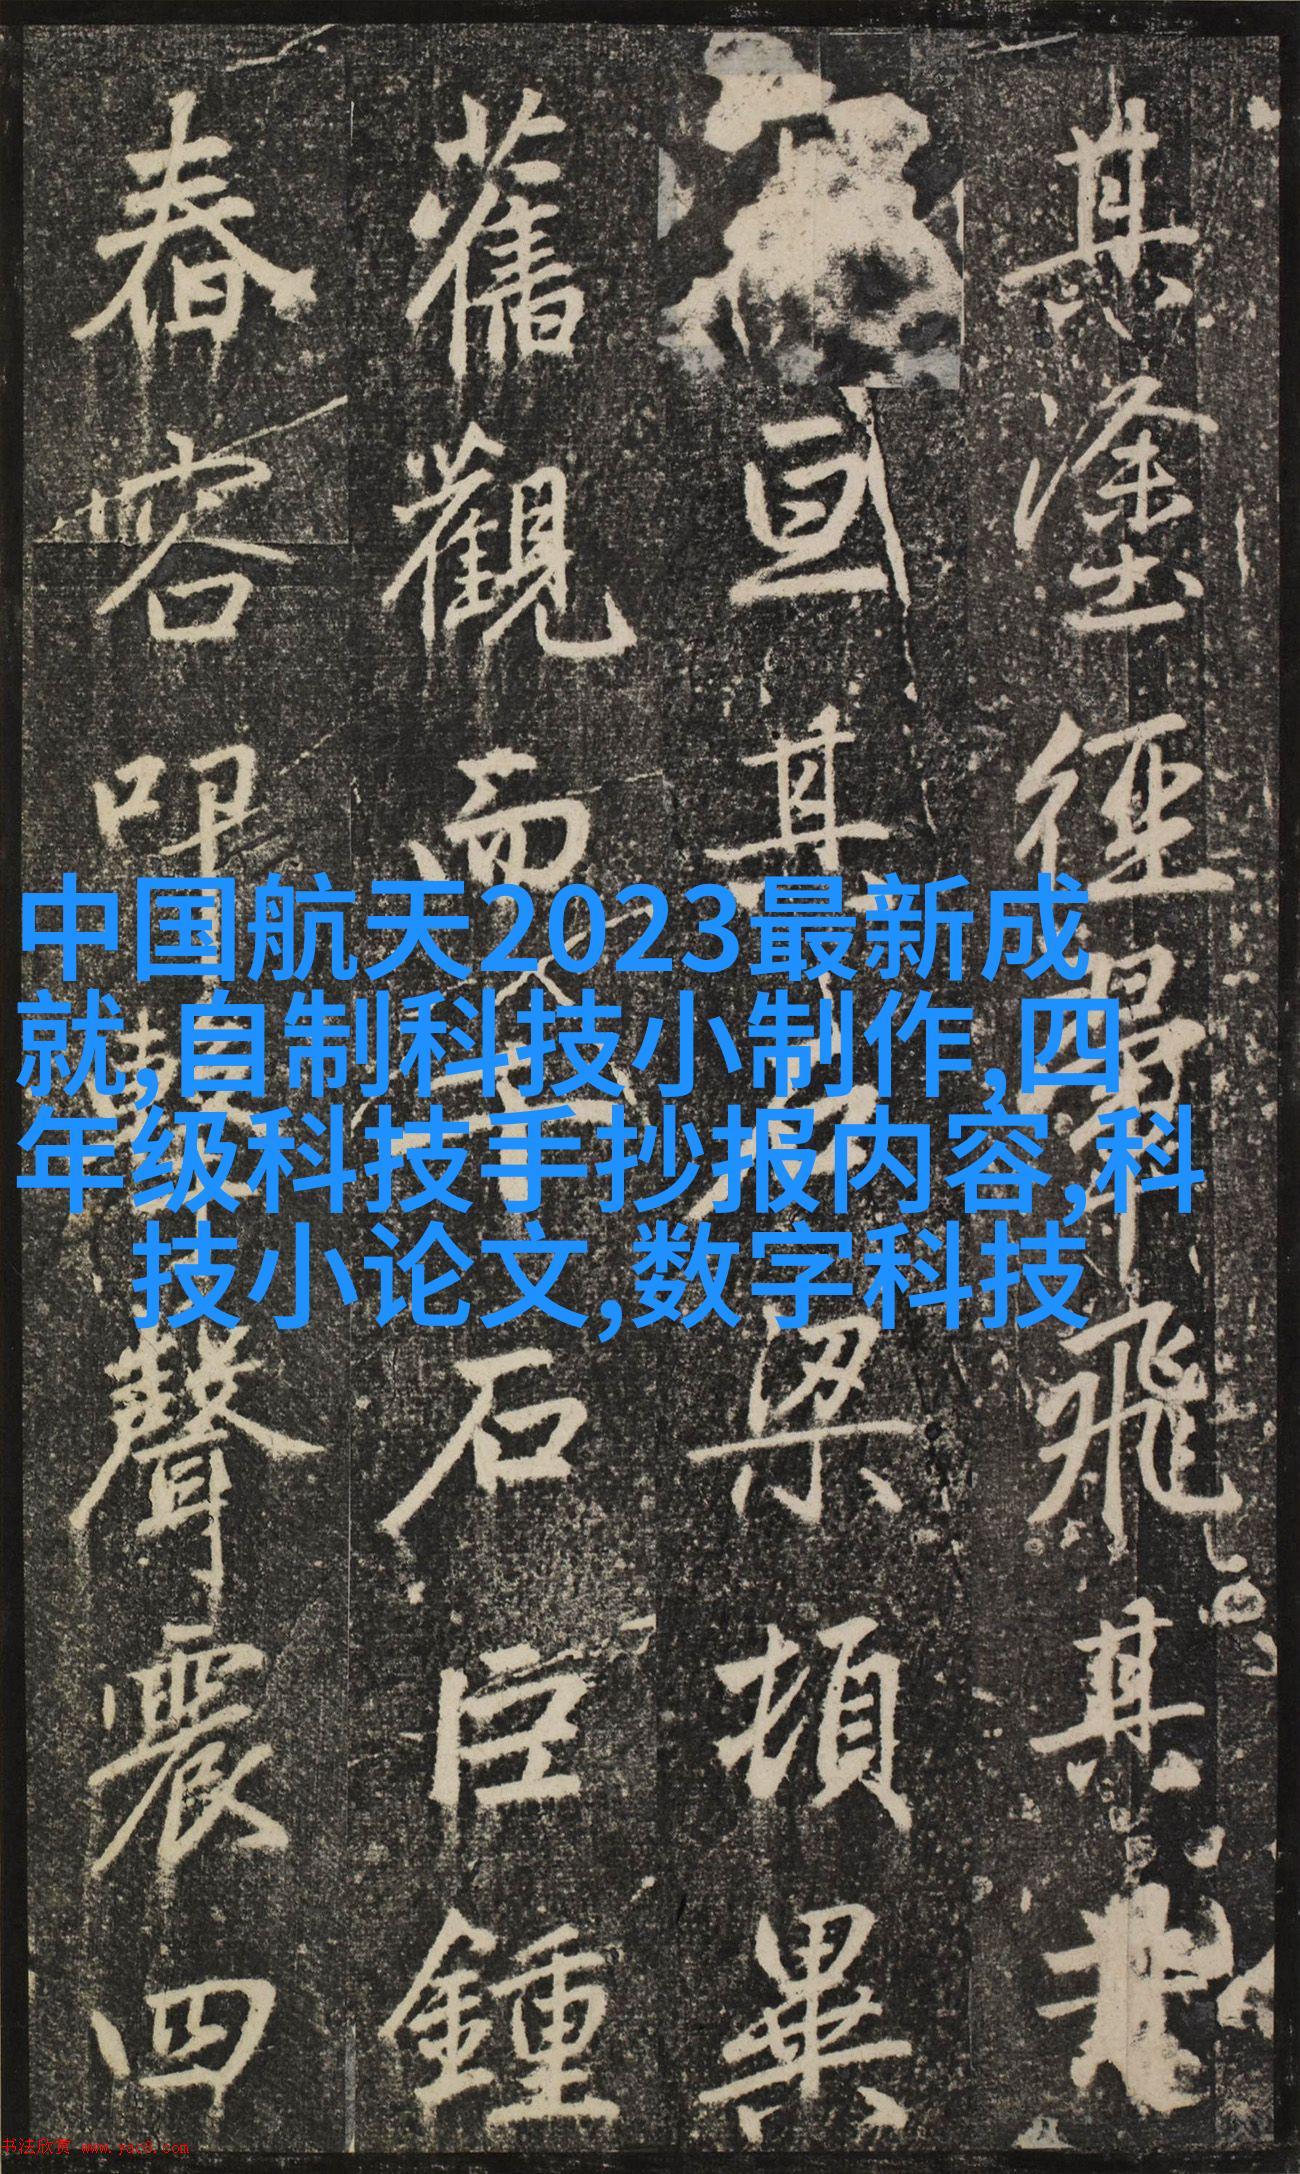 中国航天2023最新成
就,自制科技小制作,四
年级科技手抄报内容,科
技小论文,数字科技
其塗經翬飛其
亘其梁頓異
舊觀而石巨鐘
春容叩擊聲震四
书法欣赏 www.yac8.com